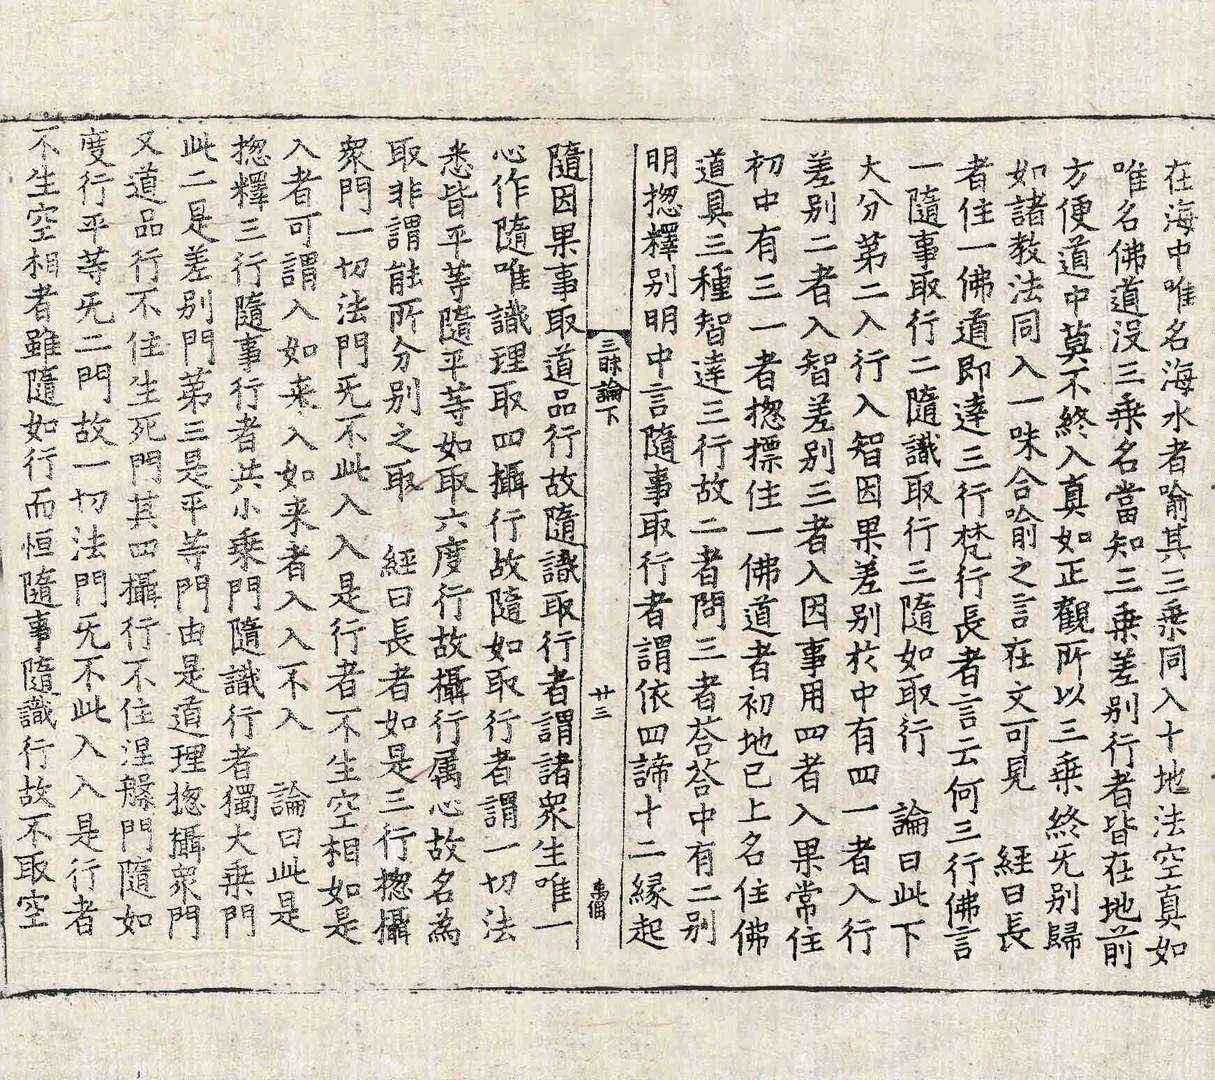 在海中唯名海水者喻其三乗同入十地法空真如
唯名佛道没三乗名當知三乗差别行者皆在地前
方便道中莫不終入真如正觀所以三乗終旡别歸
如諸教法同入一味合喻之言在文可見　經曰長
者住一佛道即達三行梵行長者言云何三行佛言
一隨事取行二隨識取行三隨如取行　論曰此下
大分第二入行入智因果差别於中有四一者入行
差别二者入智差别三者入因事用四者入果常住
初中有三一者揔摽住一佛道者初地已上名住佛
道具三種智達三行故二者問三者荅荅中有二别
明揔釋别明中言隨事取行者謂依四諦十二縁起
三昧論下　廿三　禹個
隨因果事取道品行故隨識取行者謂諸衆生唯一
心作隨唯識理取四攝行故隨如取行者謂一切法
悉皆平等隨平等如取六度行故攝行属心故名為
取非謂能所分别之取　經曰長者如是三行揔攝
衆門一切法門旡不此入入是行者不生空相如是
入者可謂入如来入如来者入入不入　論曰此是
揔釋三行隨事行者共小乗門隨識行者獨大乗門
此二是差别門第三是平等門由是道理揔攝衆門
又道品行不住生死門其四攝行不住涅槃門隨如
度行平等旡二門故一切法門旡不此入入是行者
不生空相者雖隨如行而恒隨事隨識行故不取空